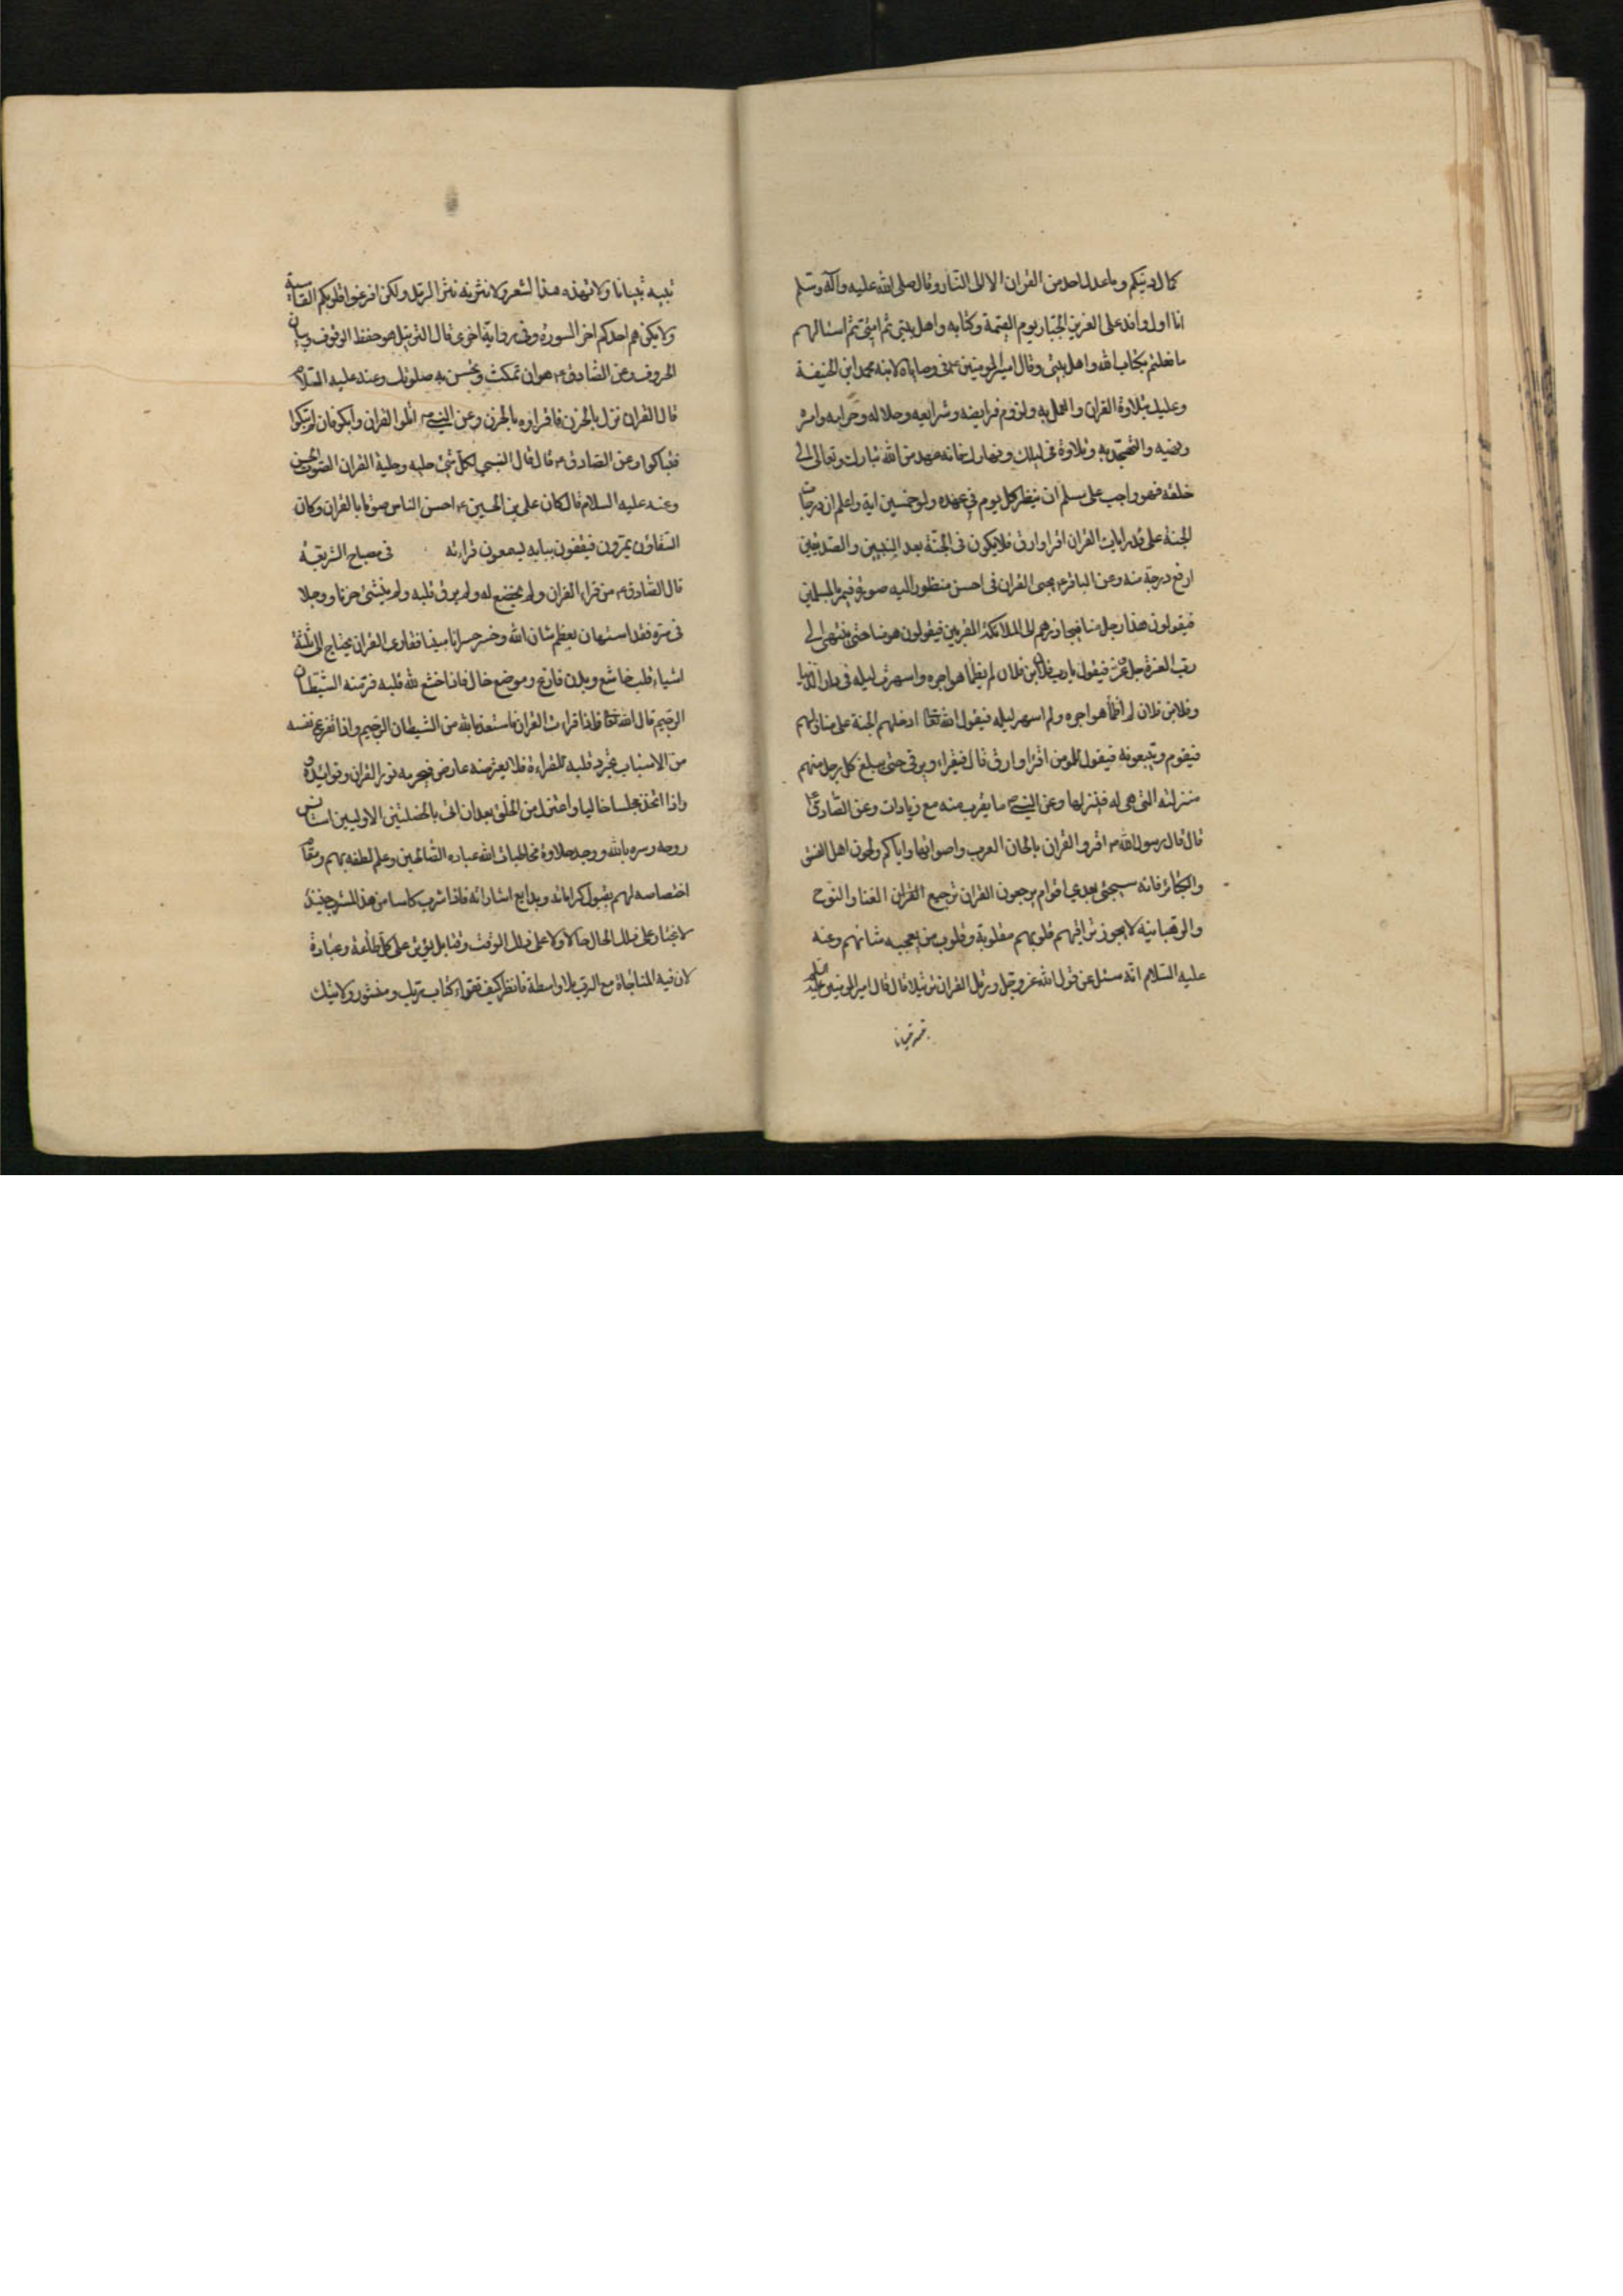 كمال دينكم وما عدل احد من القران الا الى النار وقال صلى الله عليه وآله وسلم
انا اول وافد على العزيز الجبار يوم القيمة وكتابه واهل بيتى ثم امتى ثم اسئالهم
ما فعلتم بكتاب الله واهل بيتى وقال امير المومنين ع فى وصاياه لابنه محمد ابن الحنيفة
وعليك بتلاوة القران والعمل به ولزوم فرايضه وشرايعه وحلاله وحرامه وامره
ونهيه والتهجد به وتلاوة فى ليلك ونهارك فانه عهد من الله تبارك وتعالى الى
خلقه فهو واجب على مسلم ان ينظر كل يوم فى عهده ولو خمسين اية واعلم ان درجات
الجنة على قدر ايات القران اقرا وارق فلا يكون فى الجنة بعد النبيين والصديقين
ارفع درجة منه وعن الباقر ع يجيى القران فى احسن منظور اليه صورة فيمر بالمسلمين
فيقولون هذا رجل منا فيجاوزهم الى الملائكة المقربين فيقولون هو منا حتى ينتهى الى
رب العزة جل وعز فيقول يا رب فلان بن فلان لم يظما هواجره واسهرت ليله فى دار الدنيا
وفلان بن فلان لم اظمأ هواجره ولم اسهر ليله فيقول الله تعا ادخلهم الجنة على منازلهم
فيقوم ويتبعونه فيقول للمومن اقرا وارق قال فيقراء ويرقى حتى يبلغ كل رجل منهم
منزلته التى هى له فينزلها وعن النبى ص ما يقرب منه مع زيادات وعن الصادق ع
قال قال رسول الله ص اقروا القران بالحان العرب واصواتها واياكم ولحون اهل الفسق
والكبائر فانه سيجئى بعدى اقوام يرجعون القران ترجيع القران الغنا والنوح
والرهبانية لا يجوز تراقيهم قلوبهم مقلوبة وقلوب من يعجبه شانهم وعنه
عليه السلام انه سئل عن قول الله عز وجل ورتل القران ترتيلا قال قال امير المومنين عليه السلم
تبينه تبيانا ولا تهذه هذا الشعر ولا تنثر نه نثر الرمل ولكن افرغوا قلوبكم القاسية
ولا يكن هم احدكم اخر السورة وفى رواية اخرى قال الترتيل هو حفظ الوقوف وبيان
الحروف وعن الصادق ع هو ان تمكث وتحسن به صوتك وعند عليه السلام
قال القران نزل بالحزن فاقراوه بالحزن وعن النبى ص اتلوا القران وابكو فان لم تبكوا
فتباكوا وعن الصادق ع قال قال النبى لكل شئ حلية وحلية القران الصوت الحسن
وعنه عليه السلام قال كان على بن الحسين ع احسن الناس صوتا بالقران وكان
السقاؤن يمرون فيقفون ببابه يسمعون قراءته فى مصباح الشريعة
قال الصادق ع من قراء القران ولم يخضع له ولم يرق قلبه ولم ينشئ حزنا ووجلا
فى سره فقد استهان بعظم شان الله وخسر خسرانا مبينا فقارى القران يحتاج الى ثلثة
اشياء قلب خاشع وبدن فارغ وموضع خال فاذا خشع لله قلبه فر منه الشيطان
الرجيم قال الله تعا فاذا قراءت القران فاستعذ بالله من الشيطان الرجيم واذا تفرغ نفسه
من الاسباب تجرد قلبه للقراءة فلا يعترضه عارض فيحرمه نور القران وفوائده
واذا اتخذ مجلسا خاليا واعتزل من الخلق بعد ان اتى بالخصلتين الاوليين استانس
روحه وسره بالله ووجد حلاوة مخاطبات الله عباده الصالحين وعلم لطفه بهم ومقام
اختصاصه لهم بقبول كراماته وبدايع اشاراته فاذا شرب كاسا من هذا المشرب حينئذ
لا يختار على ذلك الحال حالا ولا على ذلك الوقت وقتا بل يؤثره على كل طاعة وعبادة
لان فيه المناجاة مع الرب بلا واسطة فانظر كيف تقراء كتاب ربك ومنشور ولايتك